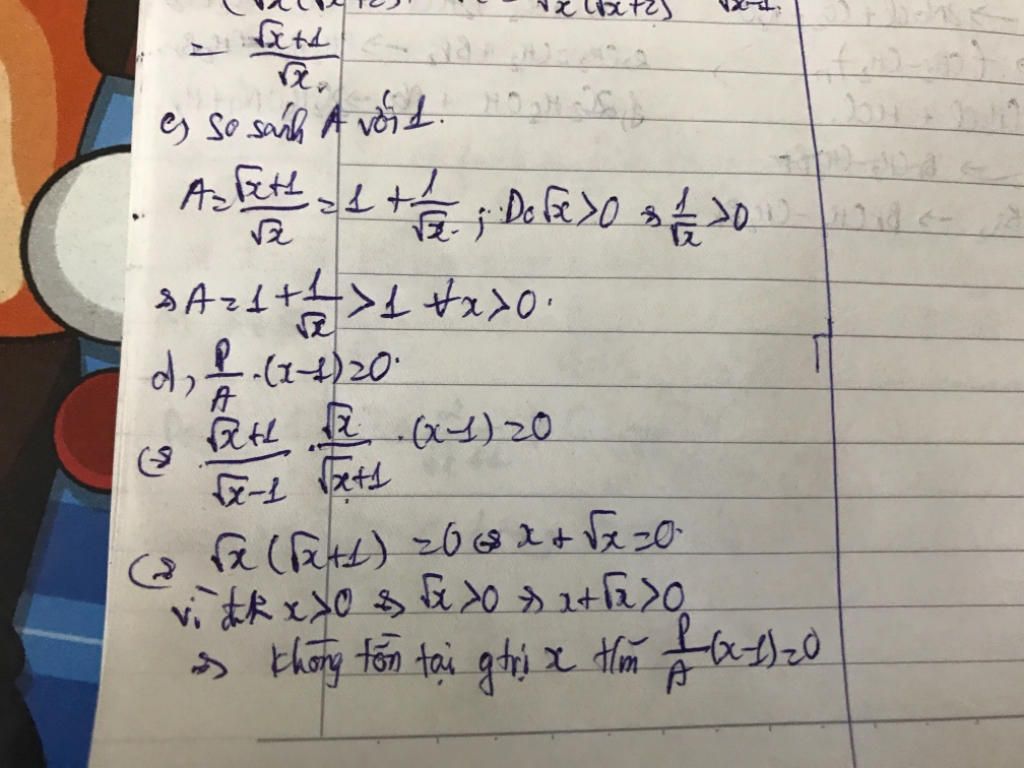 = √x+1 / √x.
c, So sánh A với 1.
A = √x+1 / √x = 1 + 1/√x ; Do √x > 0 ⇒ 1/√x > 0
⇒ A = 1 + 1/√x > 1 ∀x > 0.
d, P/A . (x-1) = 0.
⇔ √x+1 / √x-1 . √x / √x+1 . (x-1) = 0
⇔ √x (√x+1) = 0 ⇔ x + √x = 0.
vì đk x > 0 ⇒ √x > 0 ⇒ x+√x > 0
⇒ không tồn tại gtrị x tm P/A (x-1) = 0